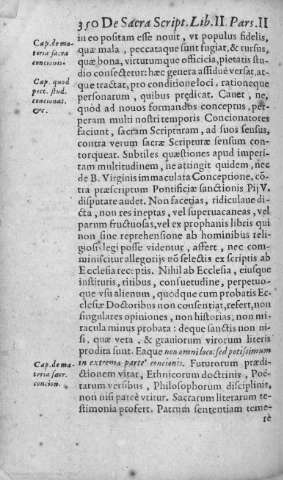 350 De Sacra Script. Lib. II. Pars. II
in eo positam esse nouit, vt populus fidelis,
Cap. de ma-
teria sacra
concion.
quæ mala, peccataque sunt fugiat, & rursus,
quæ bona, virtutumque officia, pietatis stu-
dio consectetur: hæc genera assiduè versat, at-
Cap. quod
pręt. stud.
concionat.
&c.
que tractat, pro conditione loci, rationeque
personarum, quibus prędicat. Cauet, ne,
quod ad nouos formandos conceptus, per-
peram multi nostri temporis Concionatores
faciunt, sacram Scripturam, ad suos sensus,
contra verum sacræ Scripturæ sensum con-
torqueat. Subtiles quæstiones apud imperi-
tam multitudinem, ne attingit quidem, nec
de B. Virginis immaculata Conceptione, cō-
tra præscriptum Pontificiæ sanctionis Pij V.
disputare audet. Non facetias, ridiculaue di-
cta, non res ineptas, vel superuacaneas, vel
parum fructuosas, vel ex prophanis libris qui
non sine reprehensione ab hominibus reli-
giosis legi posse videntur, affert, nec com-
miniscitur allegorijs nō selectis ex scriptis ab
Ecclesia receptis. Nihil ab Ecclesia, eiusque
institutis, ritibus, consuetudine, perpetuo-
que vsu alienum, quodque cum probatis Ec-
clesiæ Doctoribus non consentiat, refert, non
singulares opiniones, non historias, non mi-
racula minus probata: deque sanctis non ni-
si, quæ vera, & grauiorum virorum literis
prodita sunt. Eaque non omni loco: sed potissimum
Cap. de ma-
teria sacr.
concion.
in extrema parte concionis. Futurorum prædi-
ctionem vitat, Ethnicorum doctrinis, Poë-
tarum versibus, Philosophorum disciplinis,
non nisi parcè vtitur. Sacrarum literarum te-
stimonia profert. Patrum sententiam teme-
rè